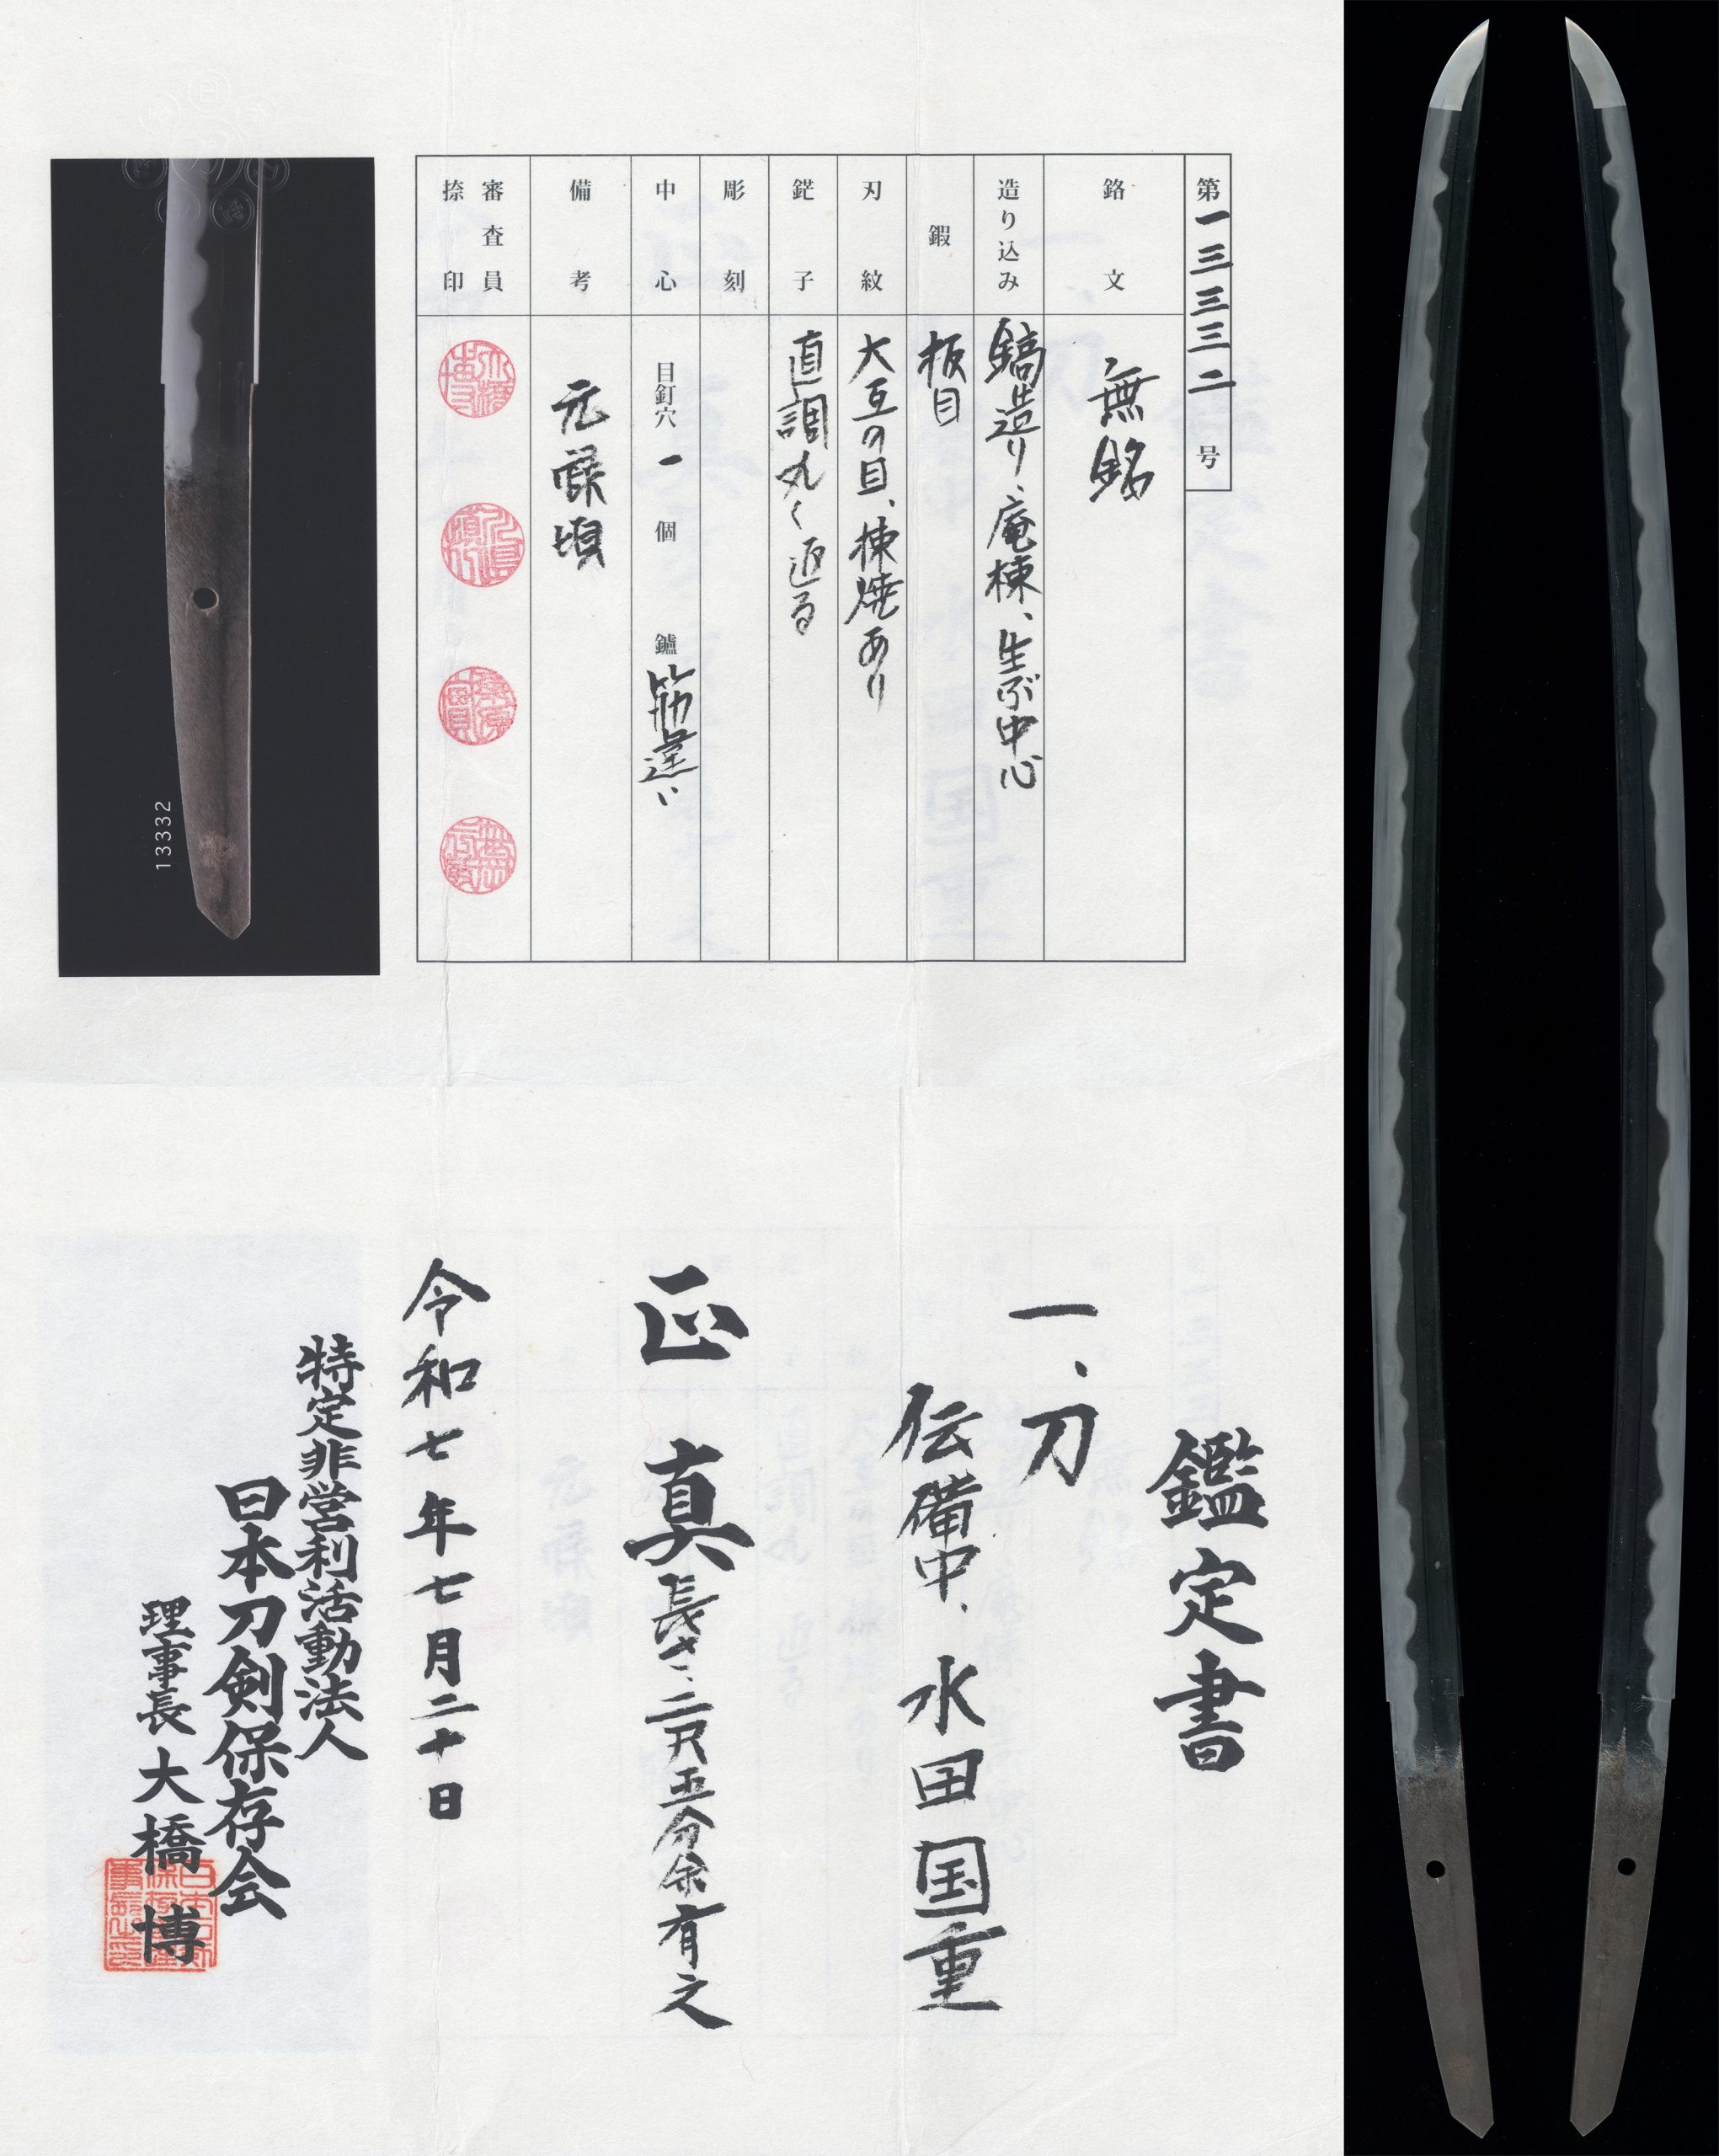 第一三三三二号
銘文
無銘
造り込み
鎬造り、庵棟、生ぶ中心
鍛
板目
刃紋
大互の目、棟焼あり
鋩子
直調丸く返る
彫刻
中心
目釘穴 一 個 鑢 筋違い
備考
元禄頃
審査員
捺印
13332
鑑定書
一、刀
伝備中、水田国重
正真
長さ、二尺五分余有之
令和七年七月二十日
特定非営利活動法人
日本刀剣保存会
理事長 大橋 博